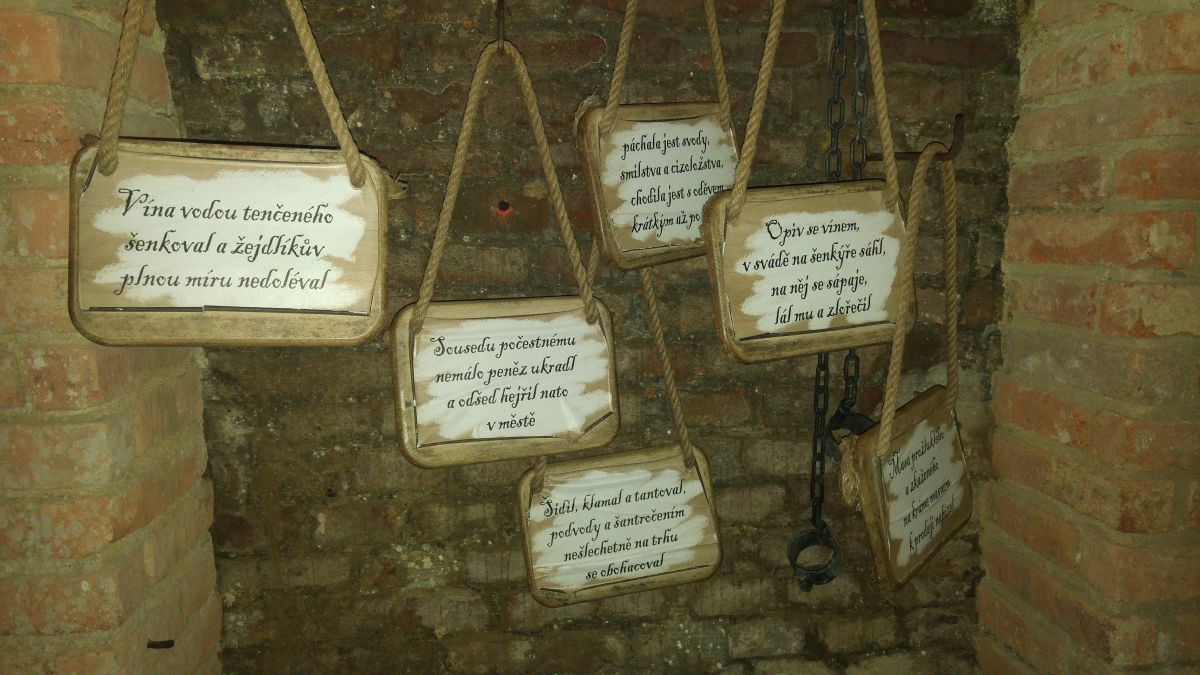 Vína vodou tenčeného
šenkoval a žejdlíkův
plnou míru nedoléval
Sousedu počestnému
nemálo peněz ukradl
a odšed hejřil nato
v městě
páchala jest svody,
smilstva a cizoložstva,
chodila jest s oděvem
krátkým až po
Opiv se vínem,
v svádě na šenkýře sáhl,
na něj se sápaje,
lál mu a zlořečil
Šidil, klamal a tantoval,
podvody a šantročením
nešlechetně na trhu
se obohacoval
Masa prožluklého
a zkaženého
na krámě masném
k prodeji nabízel